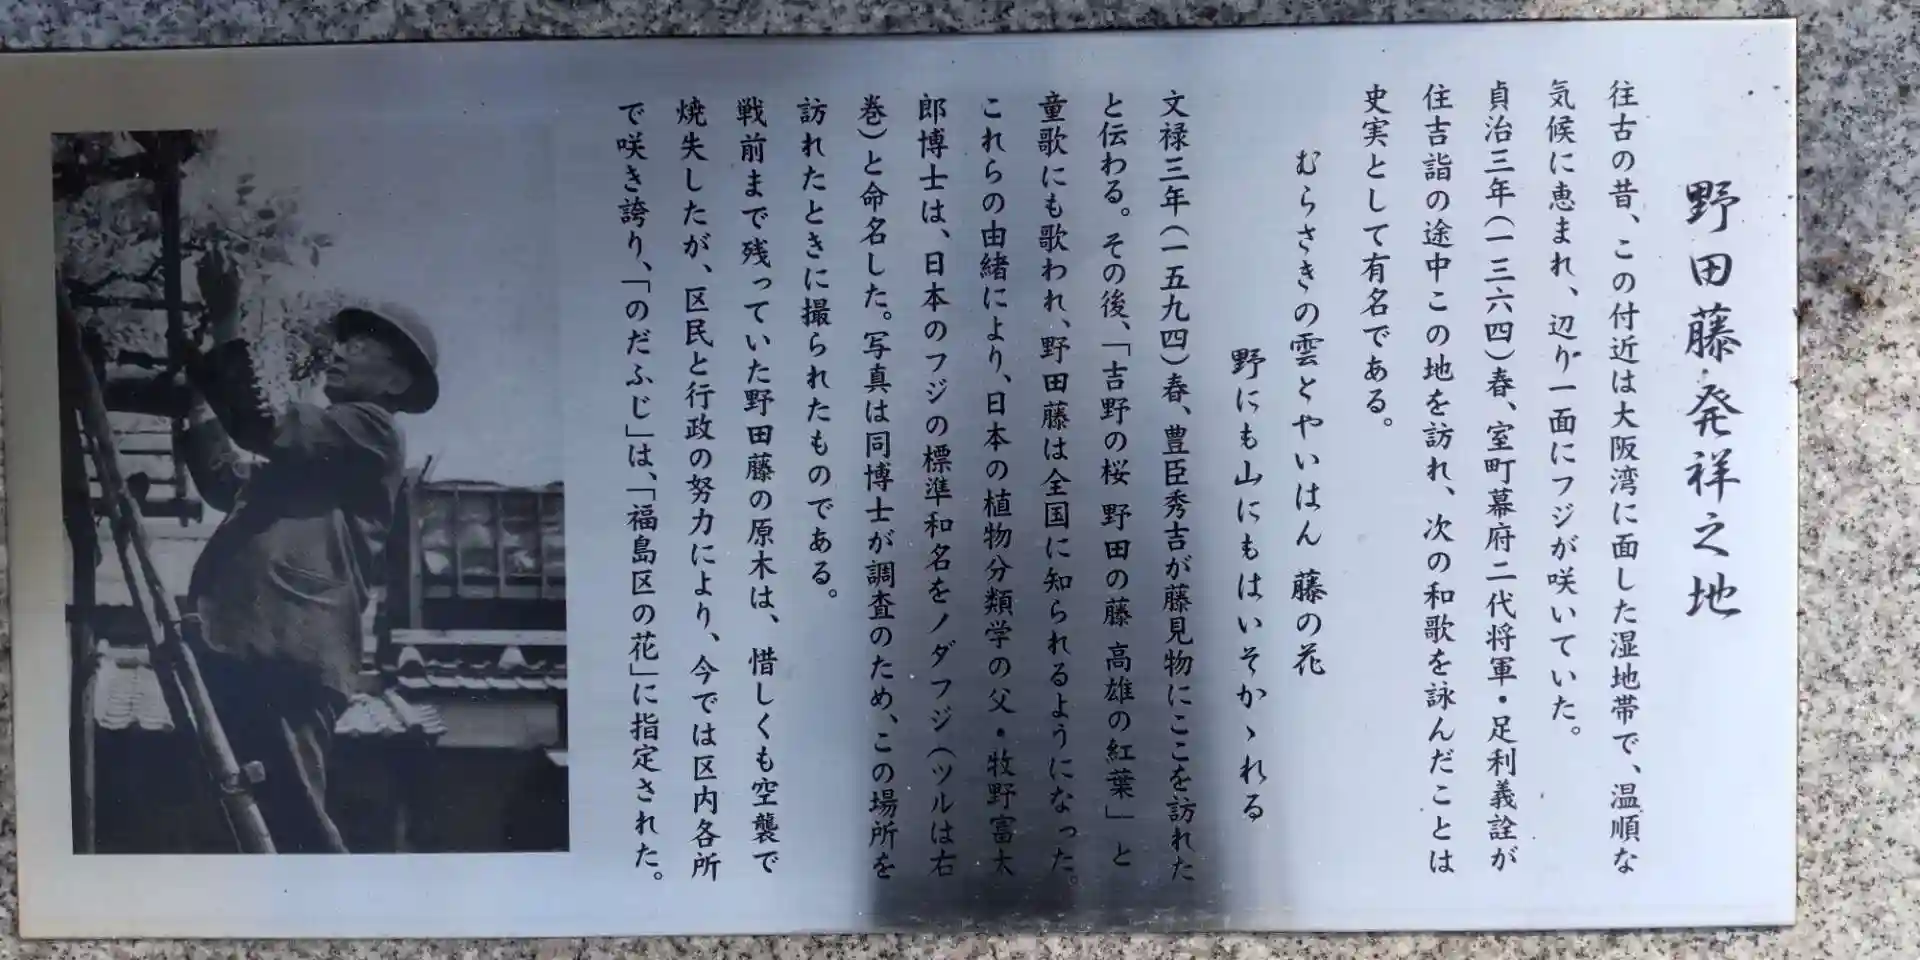 野田藤発祥之地
往古の昔、この付近は大阪湾に面した湿地帯で、温順な
気候に恵まれ、辺り一面にフジが咲いていた。
貞治三年(一三六四)春、室町幕府二代将軍・足利義詮が
住吉詣の途中この地を訪れ、次の和歌を詠んだことは
史実として有名である。
むらさきの雲とやいはん 藤の花
野にも山にもはいそかゝれる
文禄三年(一五九四)春、豊臣秀吉が藤見物にここを訪れた
と伝わる。その後、「吉野の桜 野田の藤 高雄の紅葉」と
童歌にも歌われ、野田藤は全国に知られるようになった。
これらの由緒により、日本の植物分類学の父・牧野富太
郎博士は、日本のフジの標準和名をノダフジ(ツルは右
巻)と命名した。写真は同博士が調査のため、この場所を
訪れたときに撮られたものである。
戦前まで残っていた野田藤の原木は、惜しくも空襲で
焼失したが、区民と行政の努力により、今では区内各所
で咲き誇り、「のだふじ」は、「福島区の花」に指定された。